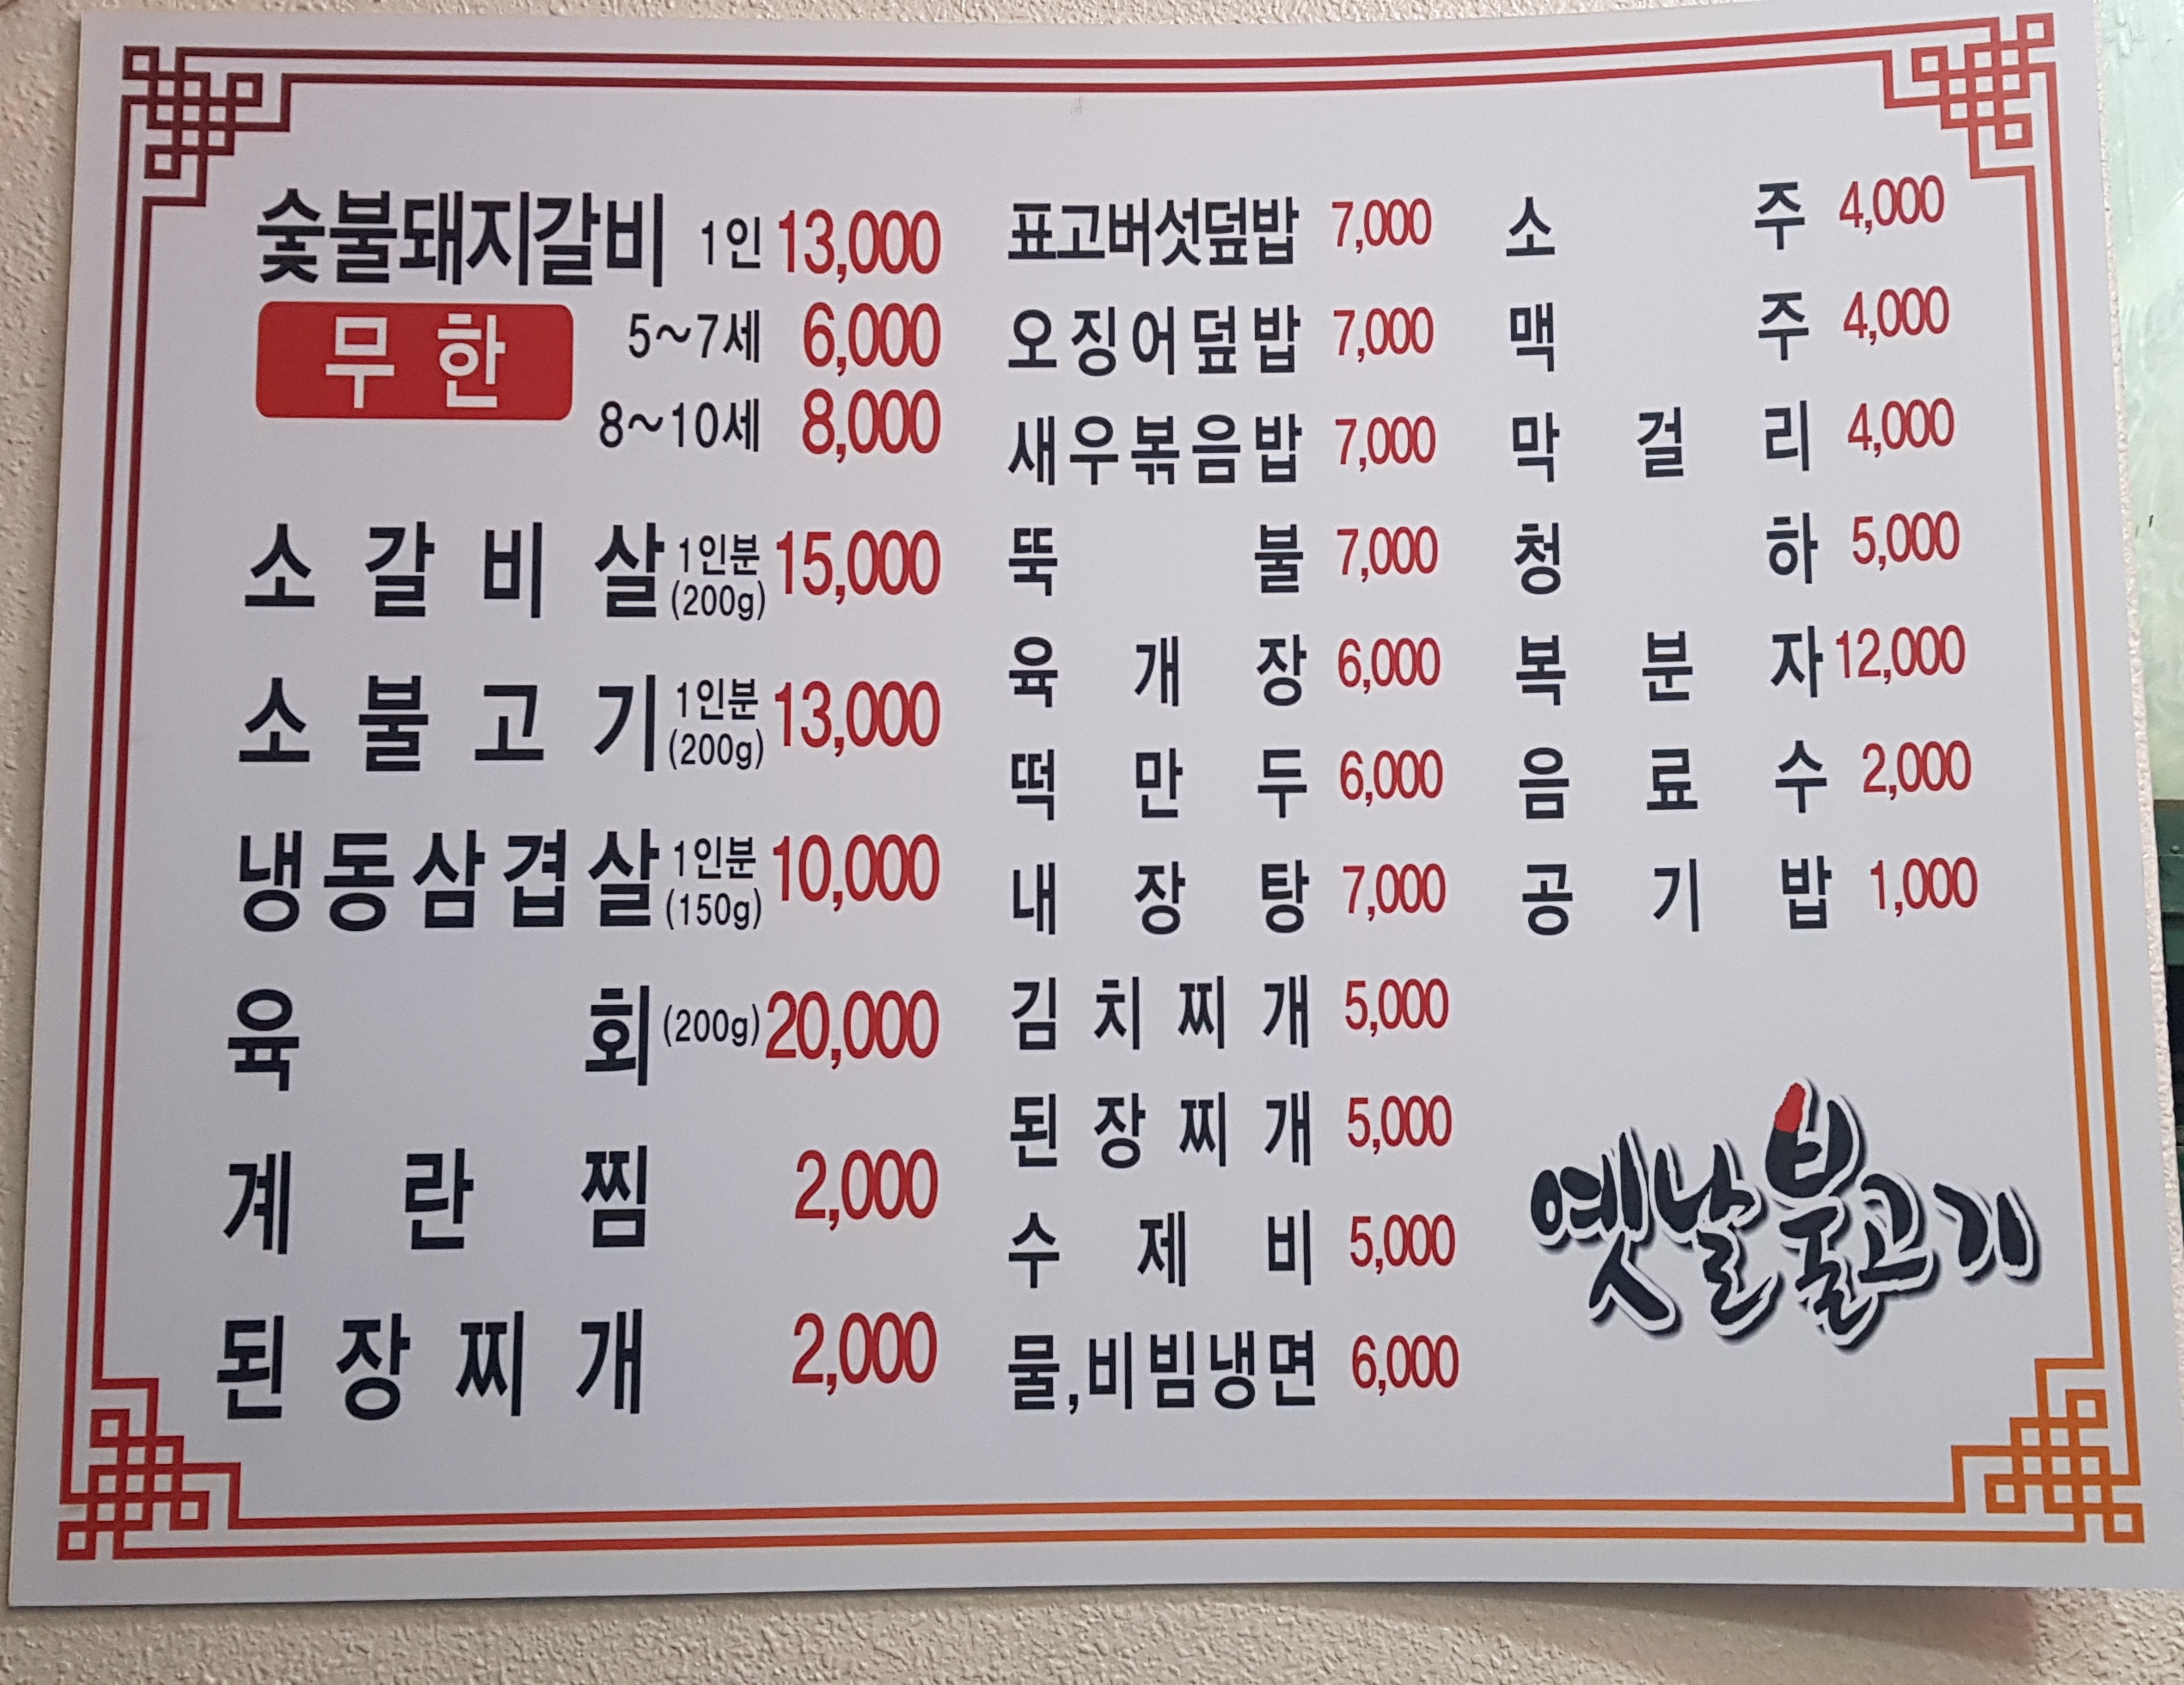 숯불돼지갈비 1인 13,000
무한 5~7세 6,000
8~10세 8,000
소갈비살 1인분 (200g) 15,000
소불고기 1인분 (200g) 13,000
냉동삼겹살 1인분 (150g) 10,000
육회 (200g) 20,000
계란찜 2,000
된장찌개 2,000
표고버섯덮밥 7,000
오징어덮밥 7,000
새우볶음밥 7,000
뚝불 7,000
육개장 6,000
떡만두 6,000
내장탕 7,000
김치찌개 5,000
된장찌개 5,000
수제비 5,000
물,비빔냉면 6,000
소주 4,000
맥주 4,000
막걸리 4,000
청하 5,000
복분자 12,000
음료수 2,000
공기밥 1,000
옛날불고기